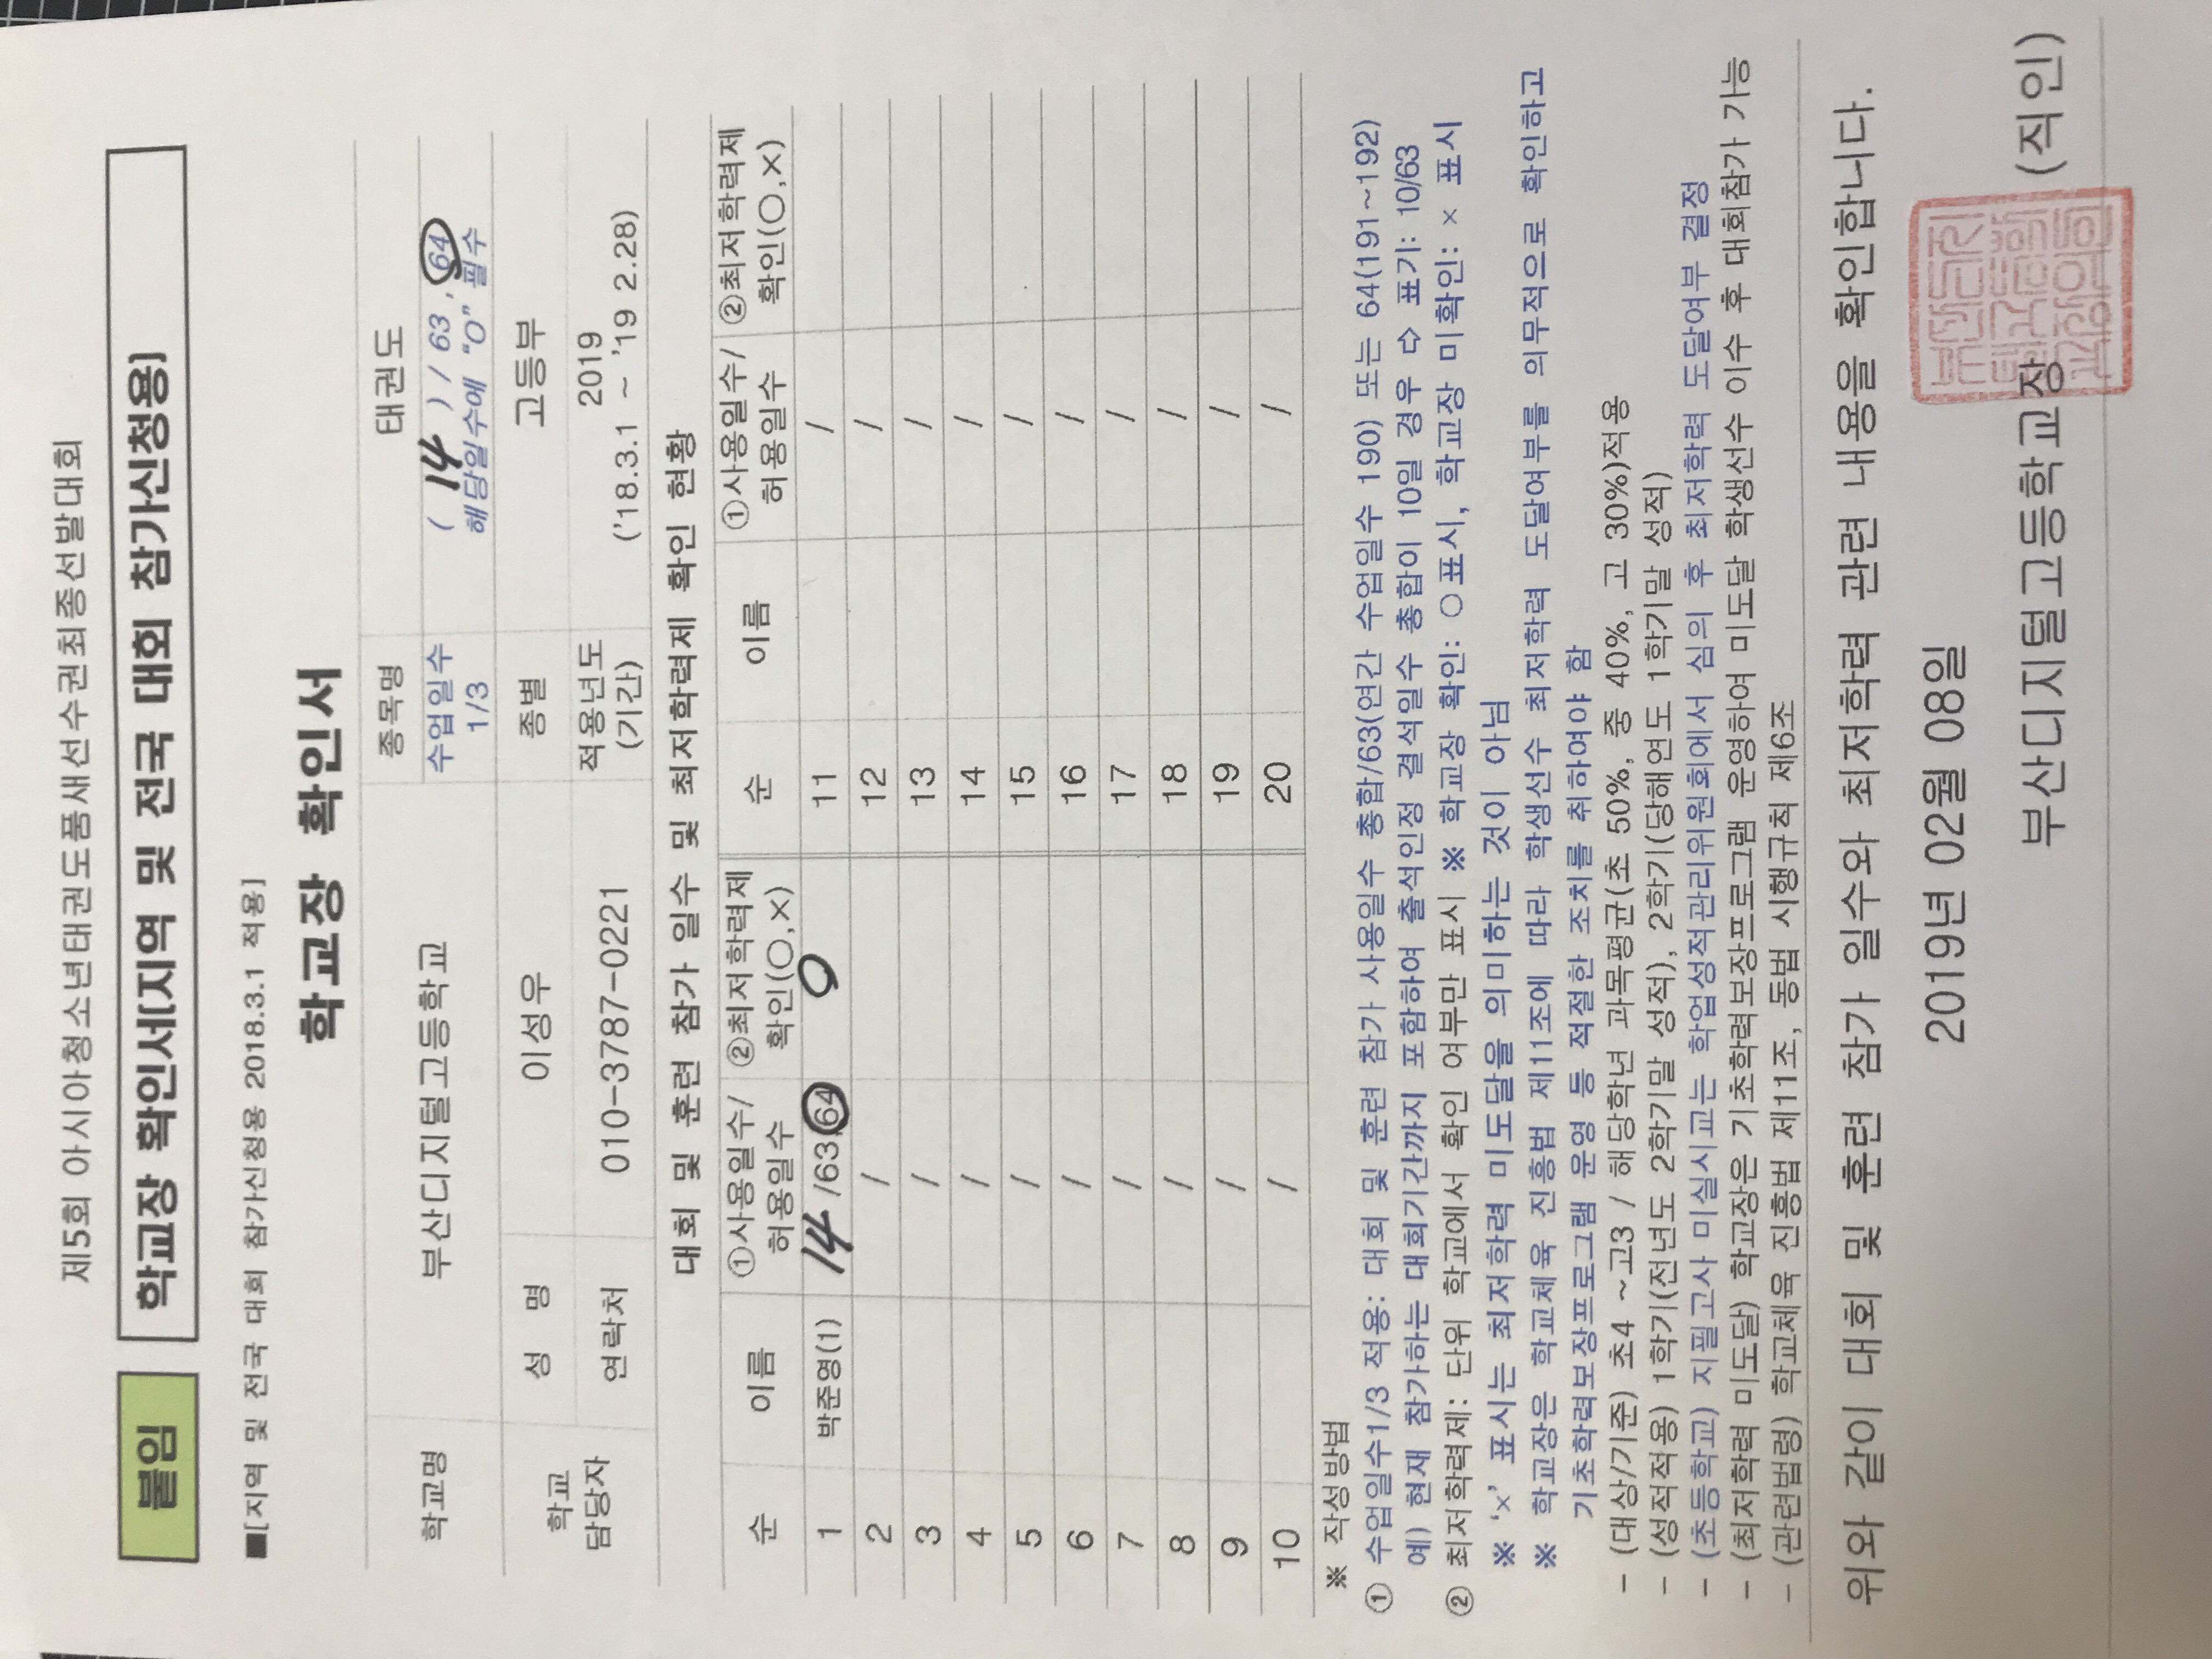 제5회 아시아청소년태권도품새선수권최종선발대회
붙임 학교장 확인서[지역 및 전국 대회 참가신청용]
■[지역 및 전국 대회 참가신청용 2018.3.1 적용]
학교장 확인서
학교명 부산디지털고등학교 종목명 태권도
수업일수 1/3 ( 14 ) / 63 , 64
해당일수에 "O" 필수
학교 담당자 성 명 이성우 종별 고등부
연락처 010-3787-0221 적용년도 (기간) 2019 ('18.3.1 ~ '19 2.28)
대회 및 훈련 참가 일수 및 최저학력제 확인 현황
순 이름 ①사용일수/허용일수 ②최저학력제 확인(○,×) 순 이름 ①사용일수/허용일수 ②최저학력제 확인(○,×)
1 박준영(1) 14 /63,64 O 11 /
2 / 12 /
3 / 13 /
4 / 14 /
5 / 15 /
6 / 16 /
7 / 17 /
8 / 18 /
9 / 19 /
10 / 20 /
※ 작성방법
① 수업일수1/3 적용: 대회 및 훈련 참가 사용일수 총합/63(연간 수업일수 190) 또는 64(191~192)
예) 현재 참가하는 대회기간까지 포함하여 출석인정 결석일수 총합이 10일 경우 ⇨ 표기: 10/63
② 최저학력제: 단위 학교에서 확인 여부만 표시 ※ 학교장 확인: ○ 표시, 학교장 미확인: × 표시
※ '×' 표시는 최저학력 미도달을 의미하는 것이 아님
※ 학교장은 학교체육 진흥법 제11조에 따라 학생선수 최저학력 도달여부를 의무적으로 확인하고
기초학력보장프로그램 운영 등 적절한 조치를 취하여야 함
- (대상/기준) 초4 ~고3 / 해당학년 과목평균(초 50%, 중 40%, 고 30%)적용
- (성적적용) 1학기(전년도 2학기말 성적), 2학기(당해연도 1학기말 성적)
- (초등학교) 지필고사 미실시교는 학업성적관리위원회에서 심의 후 최저학력 도달여부 결정
- (최저학력 미도달) 학교장은 기초학력보장프로그램 운영하여 미도달 학생선수 이수 후 대회참가 가능
- (관련법령) 학교체육 진흥법 제11조, 동법 시행규칙 제6조
위와 같이 대회 및 훈련 참가 일수와 최저학력 관련 내용을 확인합니다.
2019년 02월 08일
부산디지털고등학교장 (직인)